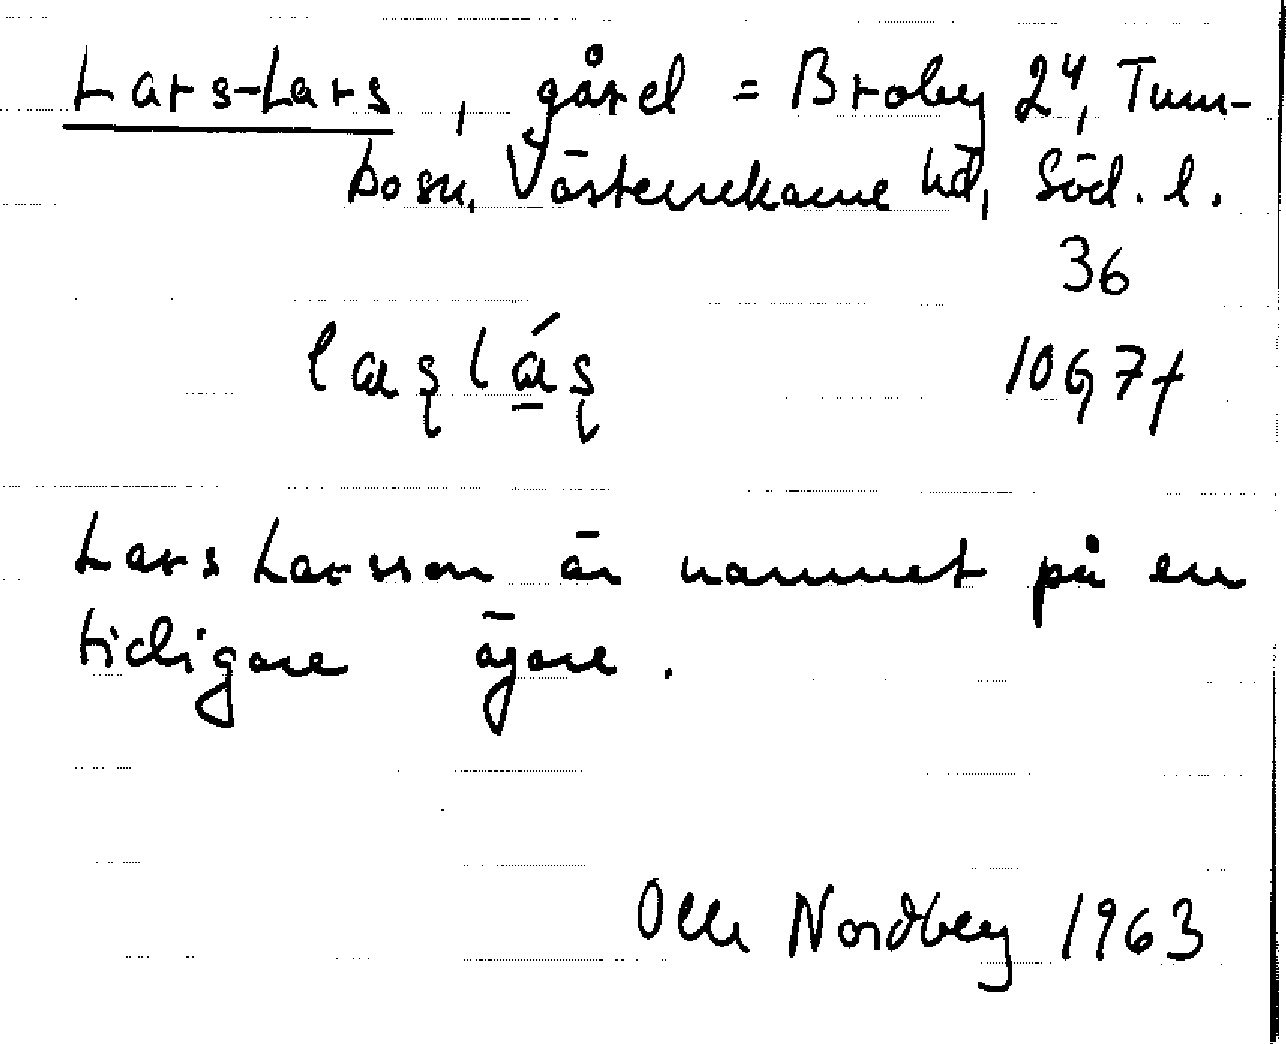 Lars-Lars, gård = Broby 2⁴, Tum-
bo sn, Västerrekarne hd, Söd. l.
36
laʂláʂ
10G7f
Lars Larsson är namnet på en
tidigare ägare.
Olle Nordberg 1963